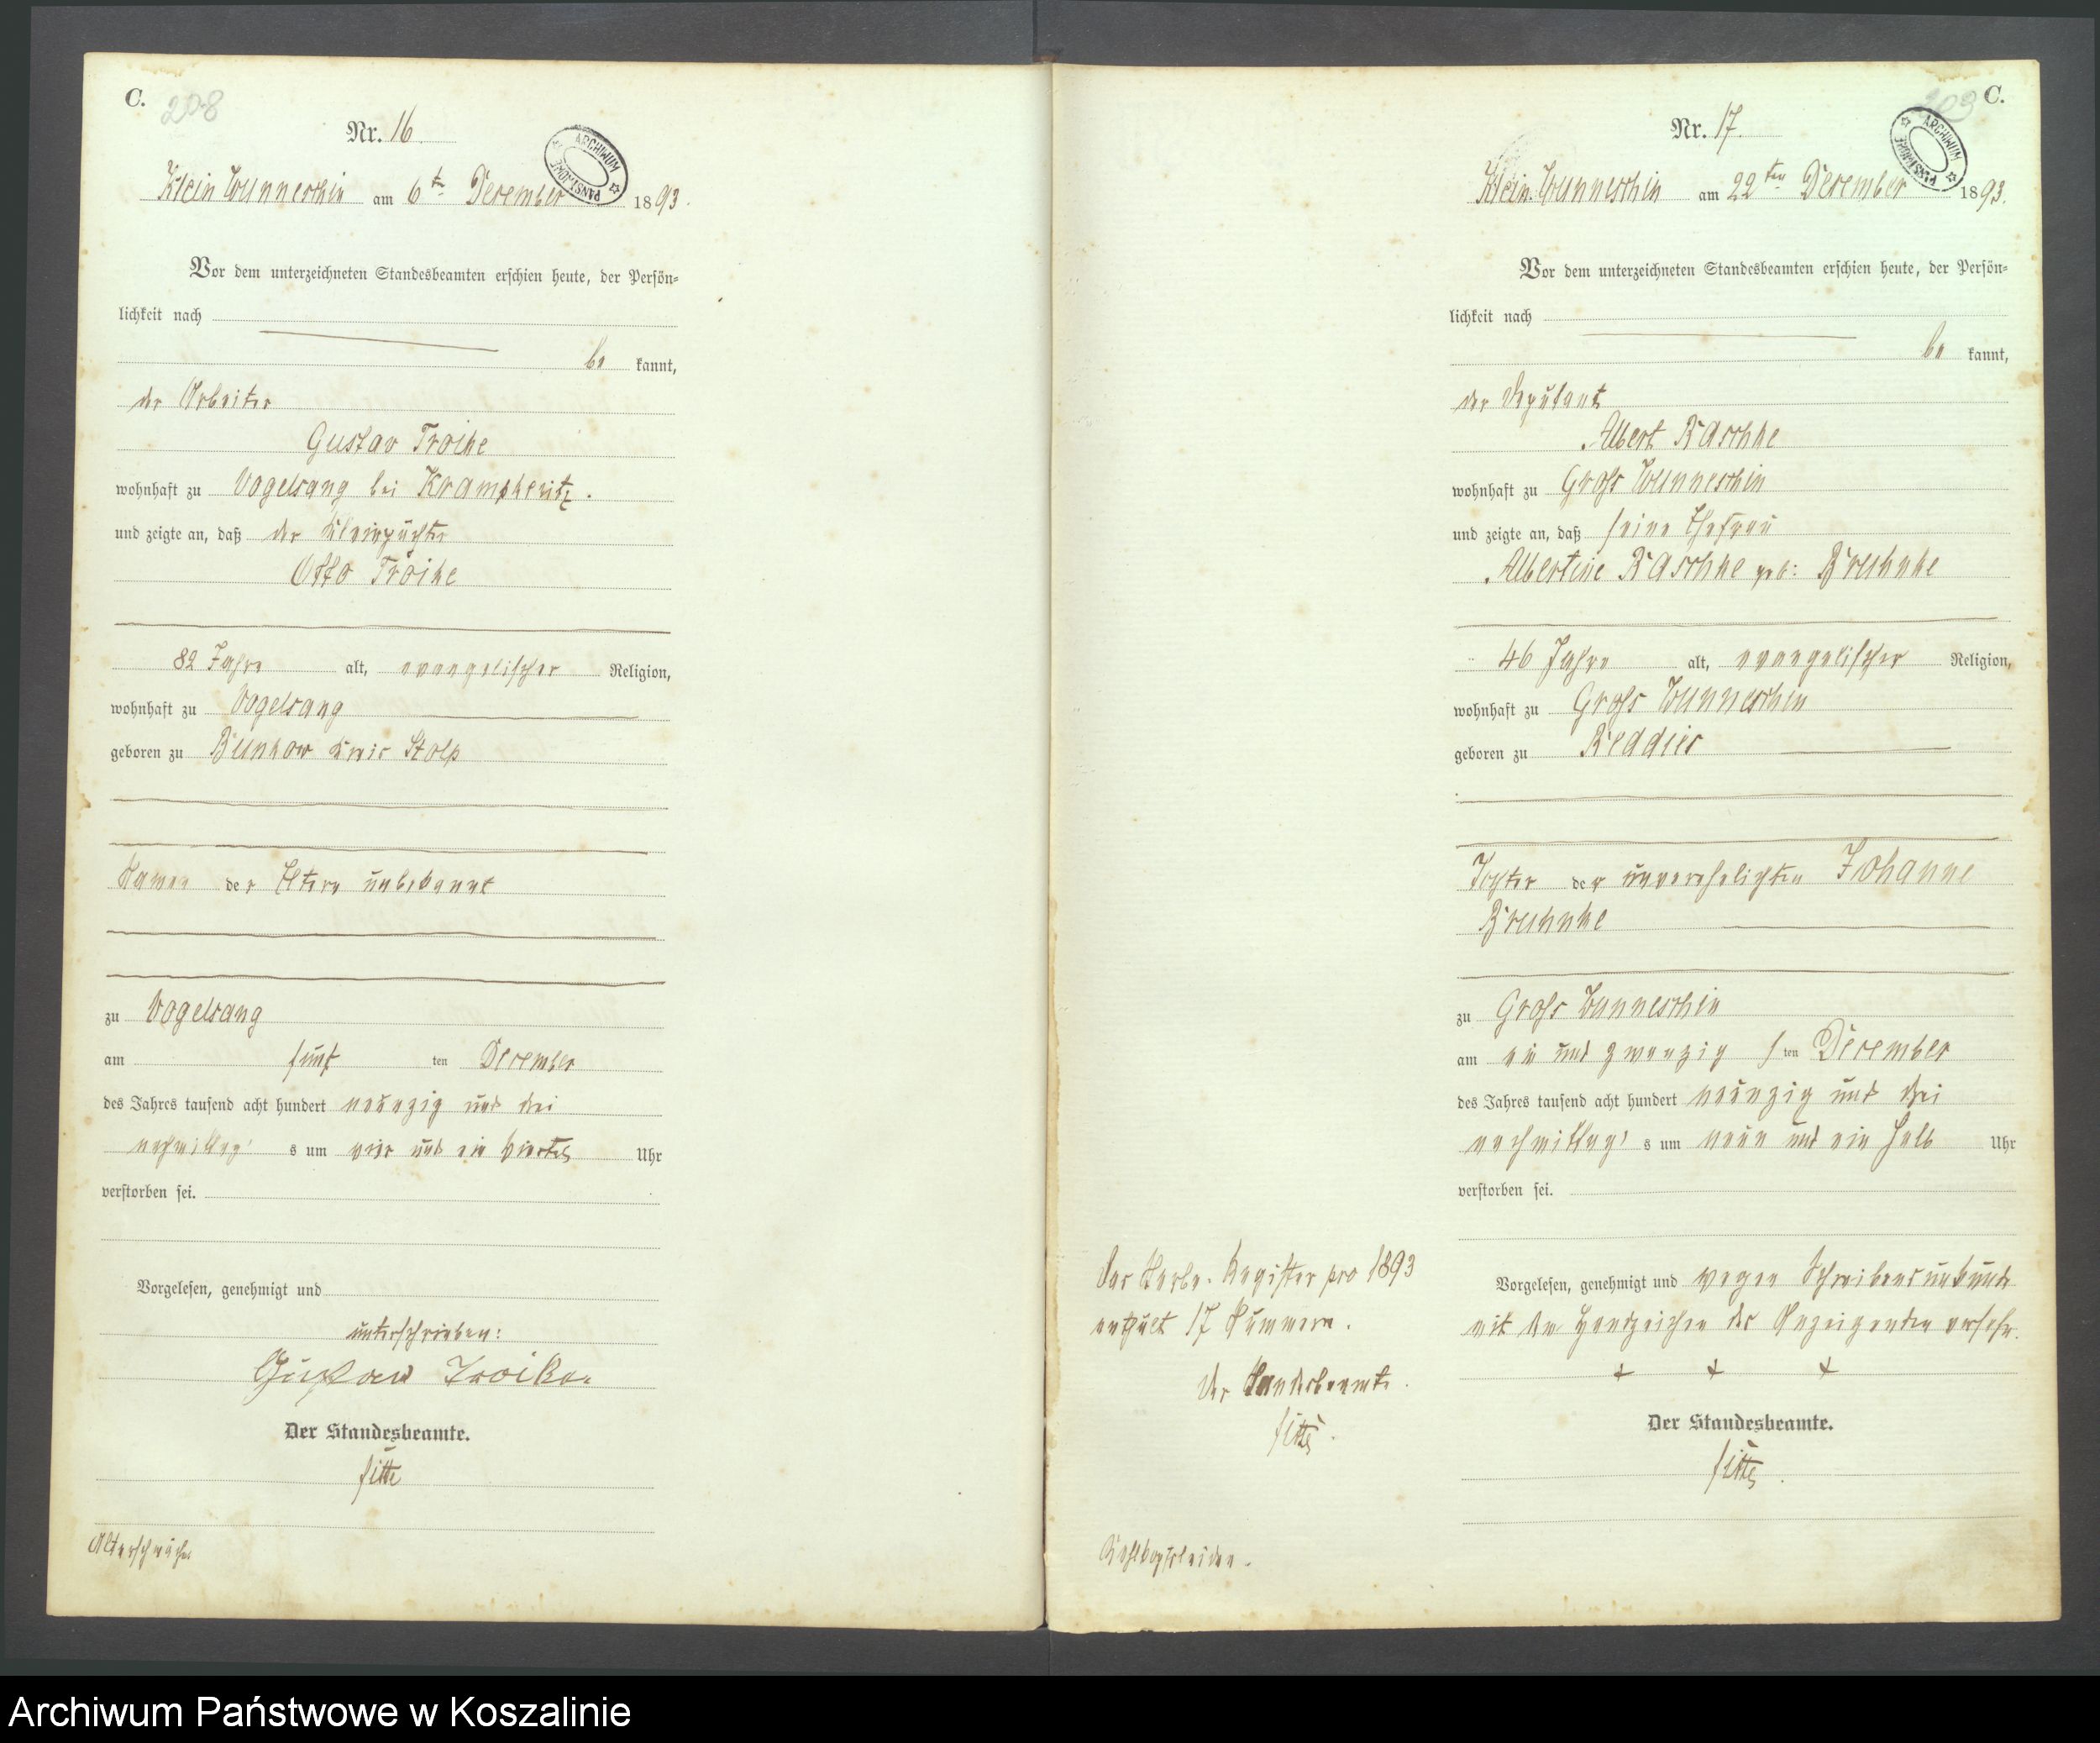 C.
208
Nr. 16.
ARCHIWUM PAŃSTWOWE
Klein Wunneschin am 6 ten December 1893.
Vor dem unterzeichneten Standesbeamten erschien heute, der Persön=
lichkeit nach
be kannt,
der Arbeiter
Gustav Troike
wohnhaft zu Vogelsang bei Krampkewitz.
und zeigte an, daß der Kleinpächter
Otto Troike
82 Jahre alt, evangelischer Religion,
wohnhaft zu Vogelsang
geboren zu Bünkow Kreis Stolp
Namen der Eltern unbekannt
zu Vogelsang
am fünf ten December
des Jahres tausend acht hundert neunzig und drei
nachmittag s um vier und ein Viertel Uhr
verstorben sei.
Vorgelesen, genehmigt und
unterschrieben:
Gustav Troike.
Der Standesbeamte.
Altersschwäche
C.
209
Nr. 17.
ARCHIWUM PAŃSTWOWE
Klein Wunneschin am 22 ten December 1893.
Vor dem unterzeichneten Standesbeamten erschien heute, der Persön=
lichkeit nach
be kannt,
der Deputant
Albert Raschke
wohnhaft zu Groß Wunneschin
und zeigte an, daß seine Ehefrau
Albertine Raschke geb: Breuhnke
46 Jahre alt, evangelischer Religion,
wohnhaft zu Groß Wunneschin
geboren zu Reddies
Tochter der unverehelichten Johanne
Breuhnke
zu Groß Wunneschin
am ein und zwanzig s ten December
des Jahres tausend acht hundert neunzig und drei
nachmittag s um neun und ein halb Uhr
verstorben sei.
Vorgelesen, genehmigt und wegen Schreibensunkunde
mit dem Handzeichen des Anzeigenden versehn.
+ + +
Der Standesbeamte.
Das Sterbe-Register pro 1893
enthält 17 Nummern.
Der Standesbeamte.
Kehlkopfsleiden.
Archiwum Państwowe w Koszalinie